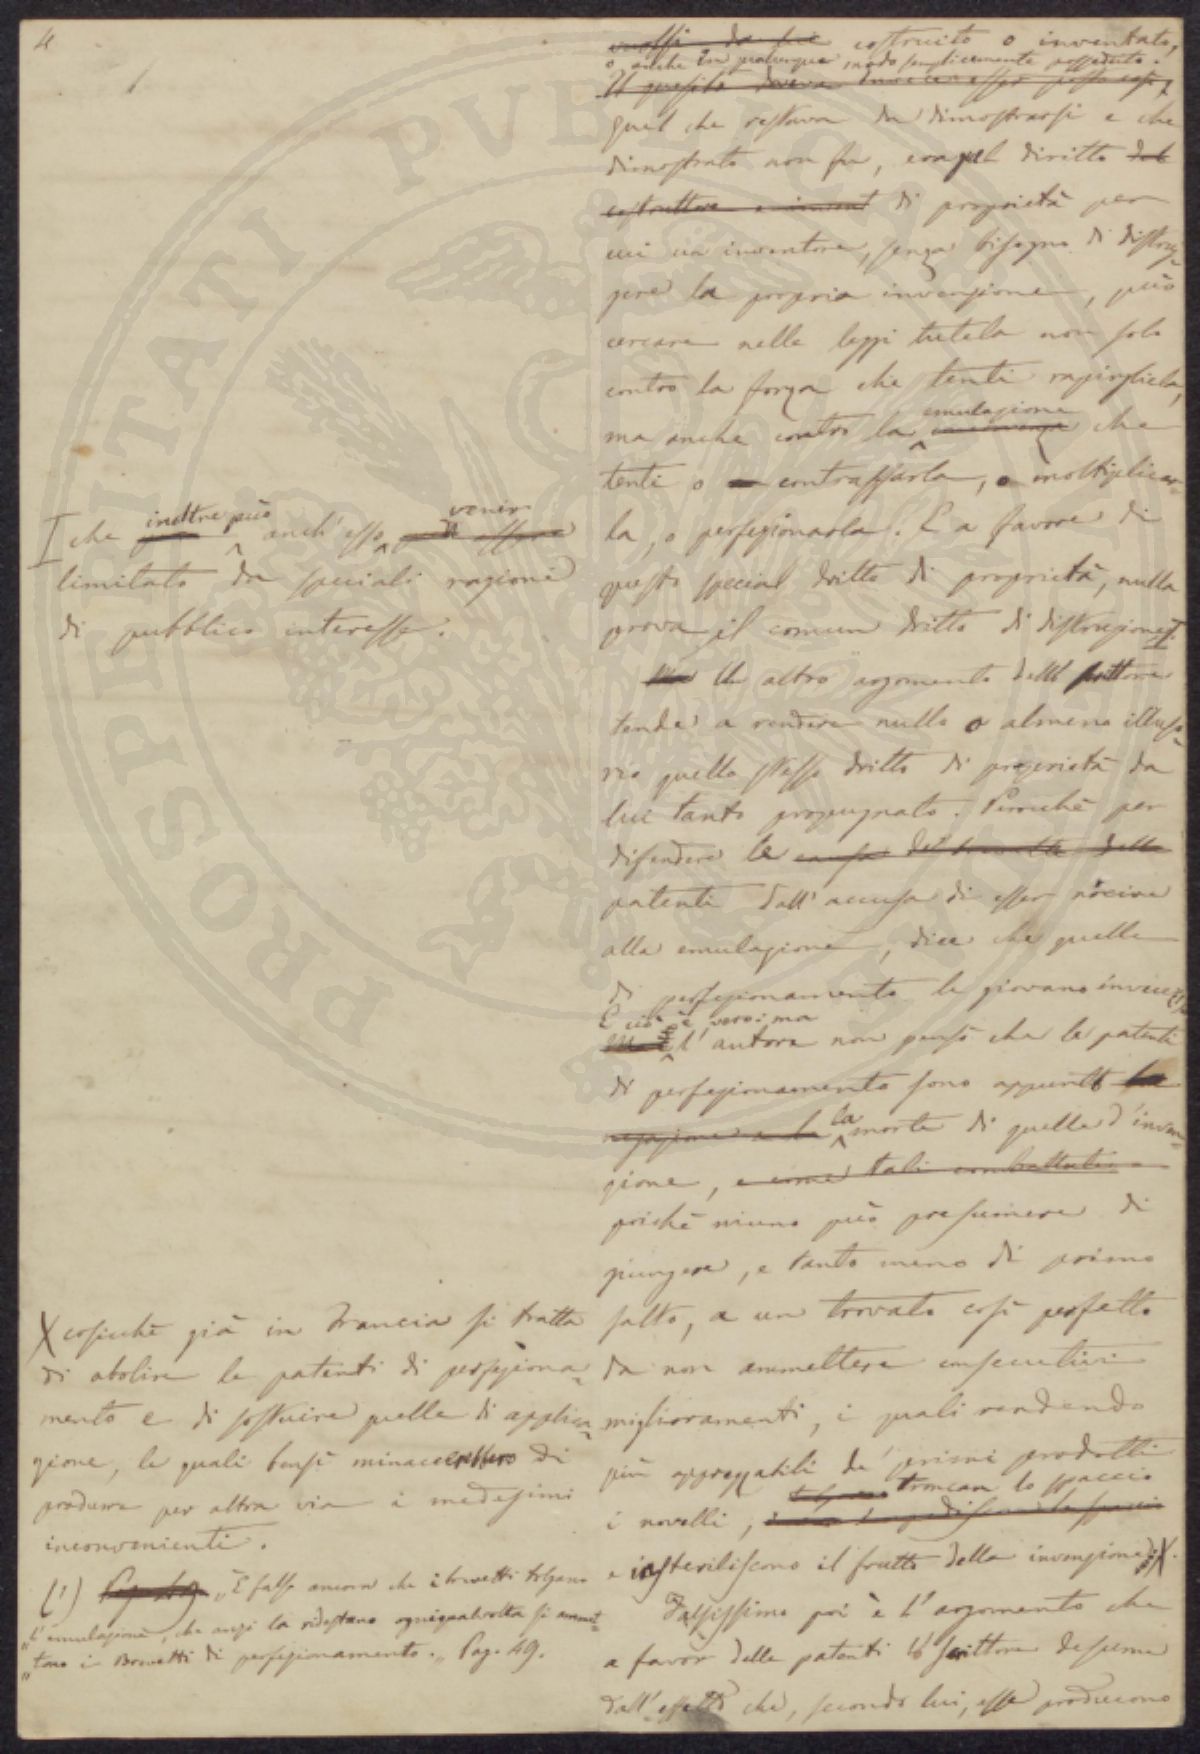 4
costruito o inventato,
o anche in qualunque modo semplicemente posseduto.
Il quesito doveva dunque esser posto così,
quel che restava da dimostrarsi e che
dimostrato non fu, era pel diritto del
costruttore e invent di proprietà per
cui un inventore, senza bisogno di distrug-
gere la propria invenzione, può
cercare nelle leggi tutela non solo
contro la forza che tenti rapirgliela,
emulazione
ma anche contro la che
tenti o contraffarla, o moltiplicar-
la, o perfezionarla. E a favore di
questo special dritto di proprietà, nulla
prova il comun dritto di distruzione I.
Un altro argomento dello scrittore
tende a rendere nullo o almeno illuso-
rio quello stesso dritto di proprietà da
lui tanto propugnato. Perocchè per
difendere le causa dei brevetti delle
patenti dall'accusa di esser nocive
alla emulazione, dice che quelle
di perfezionamento le giovano invece
E ciò è vero: ma
l'autore non pensò che le patenti
di perfezionamento sono appunto la
negazione e la la morte di quelle d'inven-
zione, e come tali combattute
poichè niuno può presumere di
giungere, e tanto meno di primo
salto, a un trovato così perfetto
da non ammettere consecutivi
miglioramenti, i quali rendendo
più apprezzabili de' primi prodotti
troncan lo spaccio
i novelli,
e isteriliscono il frutto della invenzione X.
Falsissimo poi è l'argomento che
a favor delle patenti lo scrittore desume
dall'effetto che, secondo lui, esse producono
I che inoltre può anch'esso venir
limitato da speciali ragioni
di pubblico interesse.
X cosicchè già in Francia si tratta
di abolire le patenti di perfeziona-
mento e di sostituire quelle di applica-
zione, le quali bensì minaccerebbero di
produrre per altra via i medesimi
inconvenienti.
(1) „È falso ancora che i brevetti tolgano
„l'emulazione, che anzi la ridestano ogniqualvolta si ammet-
„tano i Brevetti di perfezionamento.„ Pag. 49.
PROSPERITATI PUBLICAE